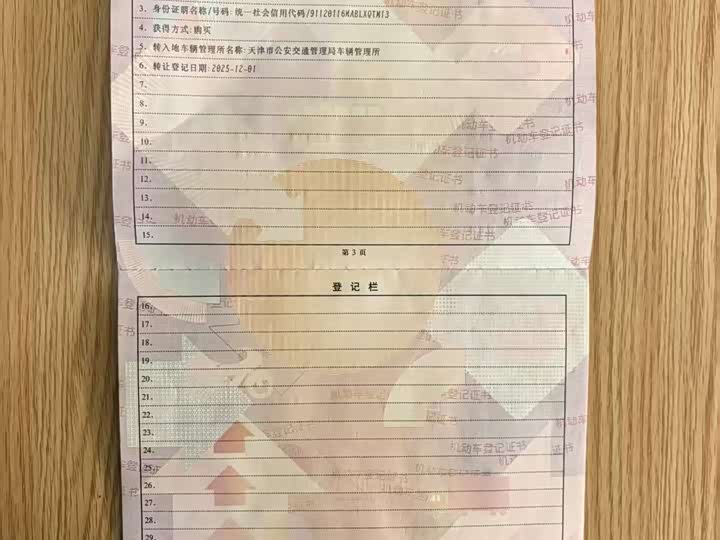 3. 身份证明名称/号码:统一社会信用代码/91120116MABLXQTM13
4. 获得方式:购买
5. 转入地车辆管理所名称:天津市公安交通管理局车辆管理所
6. 转让登记日期:2025-12-01
7.
8.
9.
10.
11.
12.
13.
14.
15.
第 3 页
登 记 栏
16.
17.
18.
19.
20.
21.
22.
23.
24.
25.
26.
27.
28.
29.
机动车登记证书